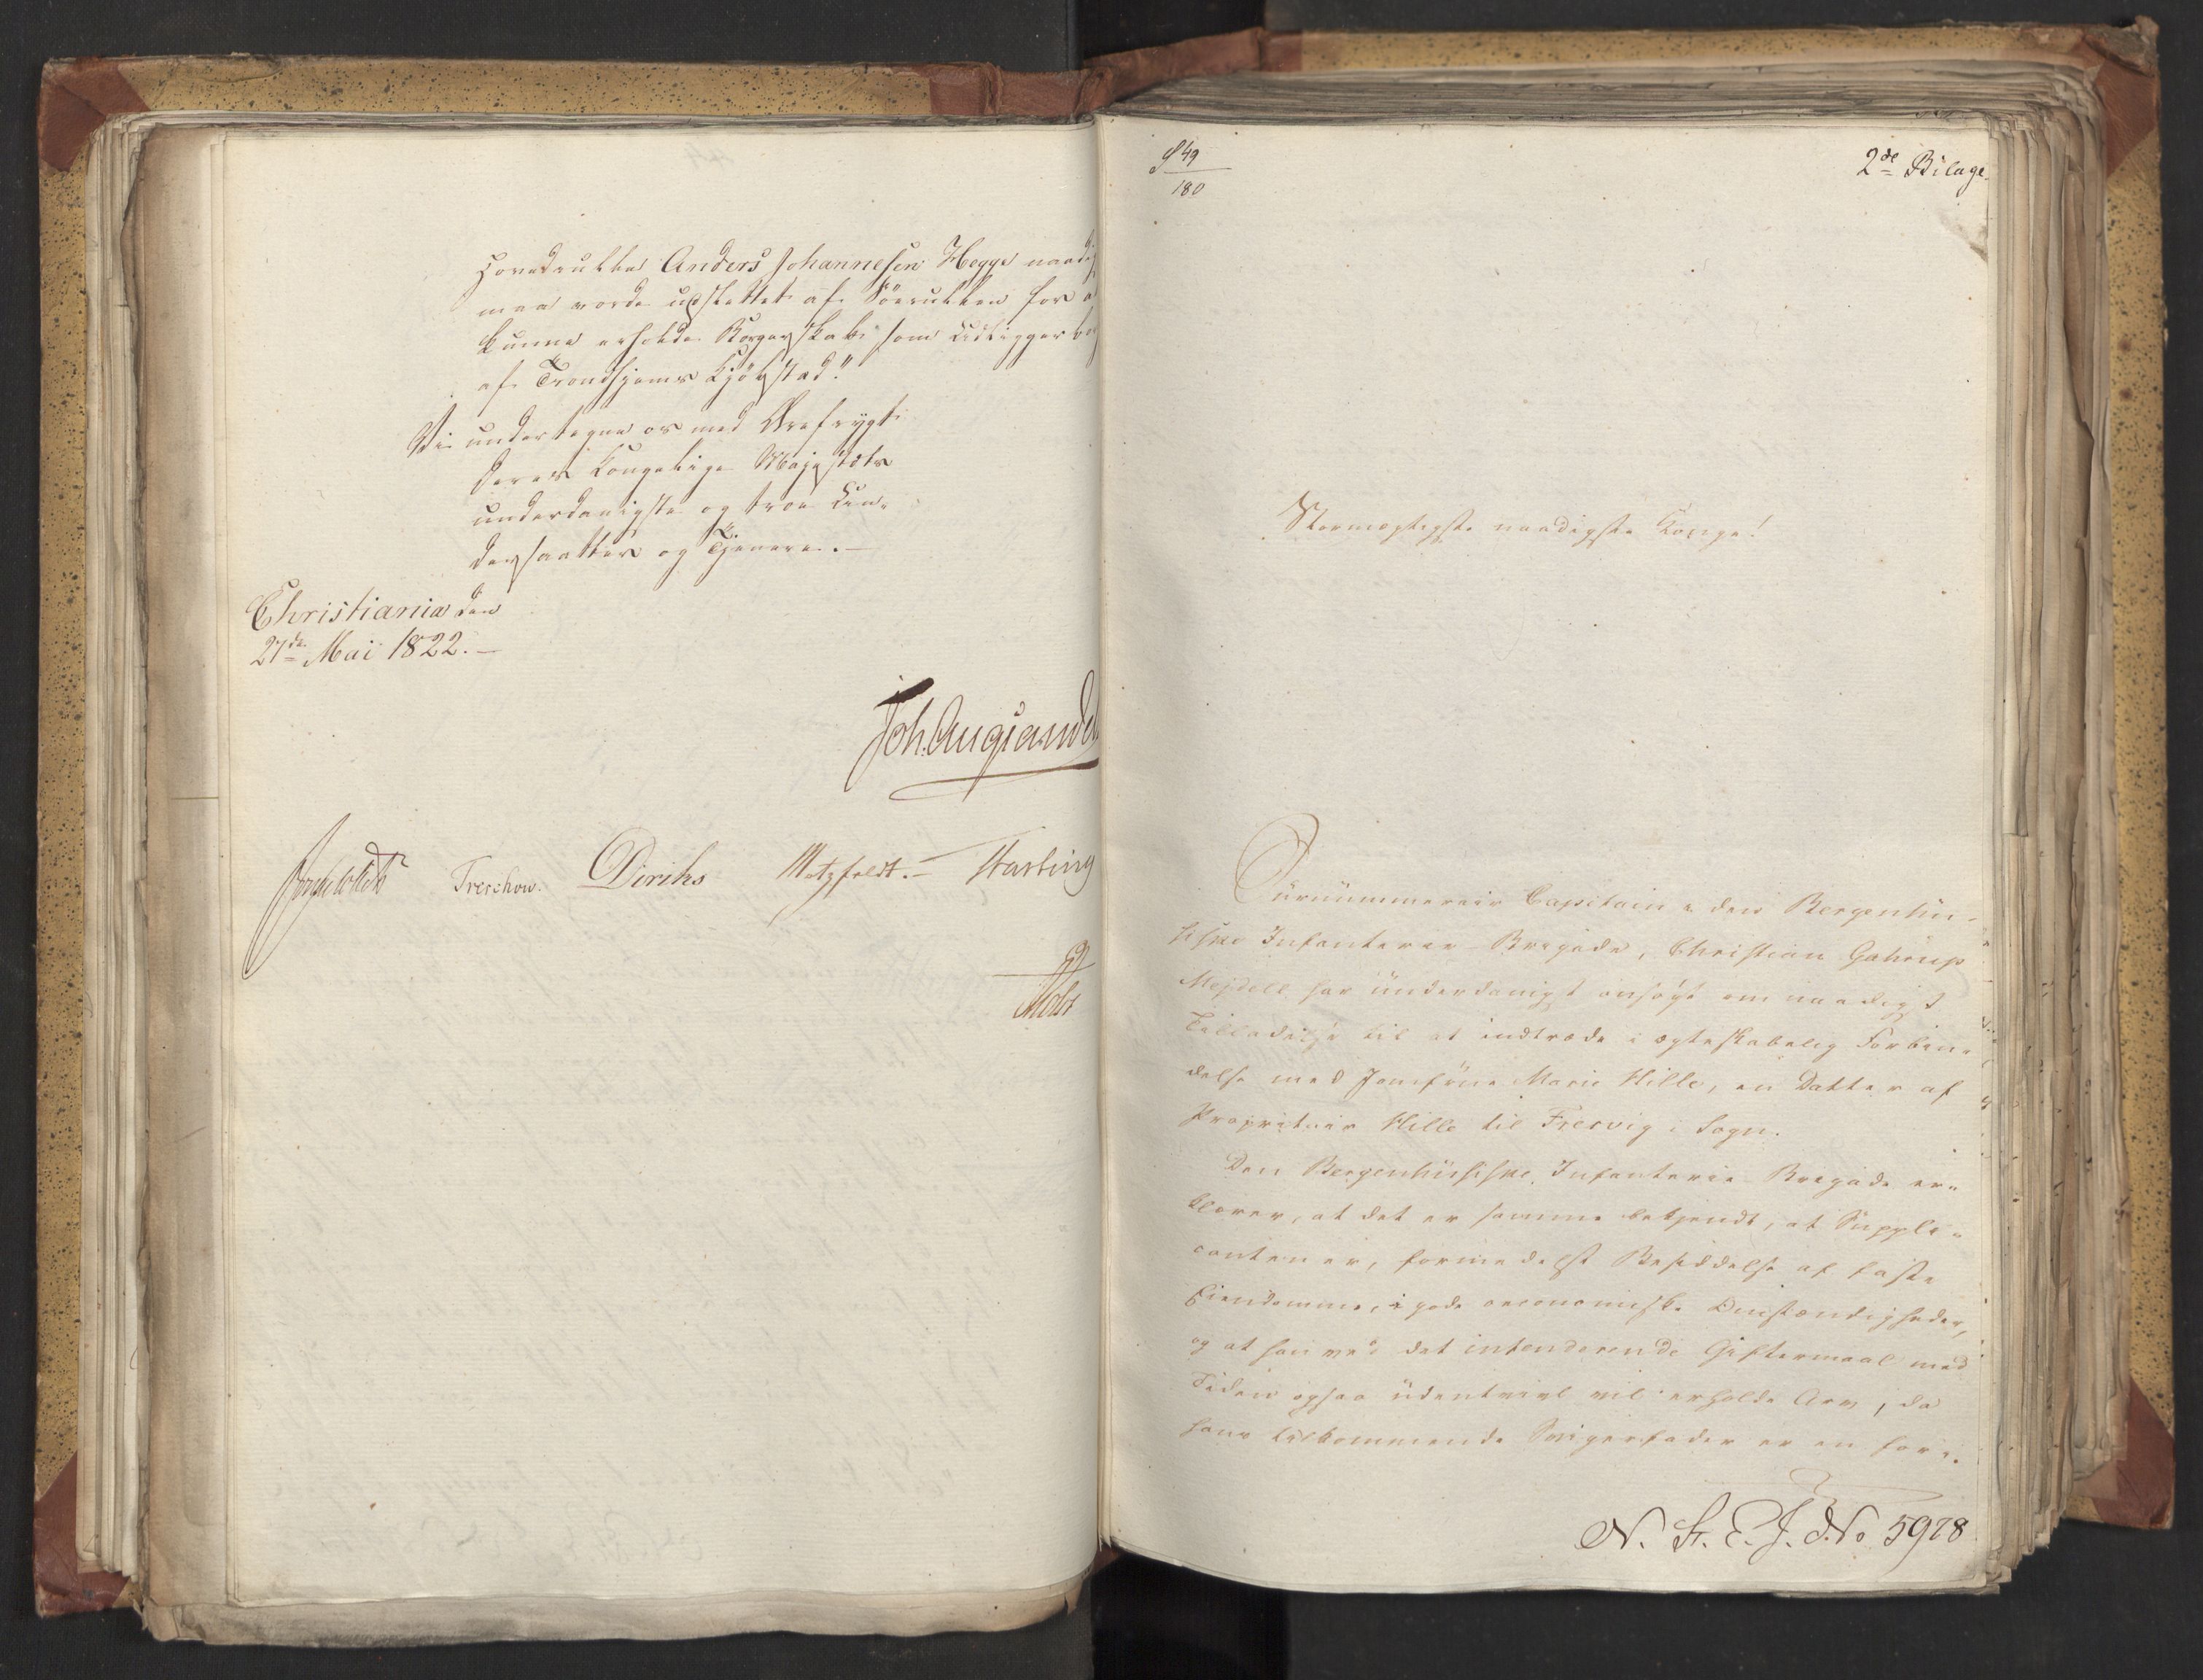 Hovedrullen Anders Johannesen Hegge naadigst
maa vorde udslettet af Söerullen for at
kunne erholde Borgerskab som Udligger
af Trondhjems Kjöbstad."
Vi undertegne os med Ærefrygt
Deres Kongelige Majestæts
underdanigste og troe Un-
dersaatter og Tjenere.—
Christiania den
27de Mai 1822.—
Joh. Aug. Sandels
Treschow. Diriks Motzfeldt.— Hasting
Holst
S 49
180
2de Bilage.
Stormægtigste naadigste Konge!
Surnummerair Capitain i den Bergenhuu-
siske Infanterie-Brigade, Christian Gahrup
Mejdell har underdanigst ansögt om naadigst
Tilladelse til at indtræde i ægteskabelig Forbin-
delse med Jomfrue Marie Hille, en Datter af
Proprietair Hille til Fresvig i Sogn.
Den Bergenhusiske Infanterie Brigade er-
klærer, at det er samme bekjendt, at Suppli-
canten er, formedelst Besiddelse af faste
Eiendomme, i gode oeconomiske Omstændigheder,
og at han ved det intenderende Giftermaal med
Tiden ogsaa udentvivl vil erholde Arv, da
hans tilkommende Svigerfader er en for-
N. St. E. J. No 5978